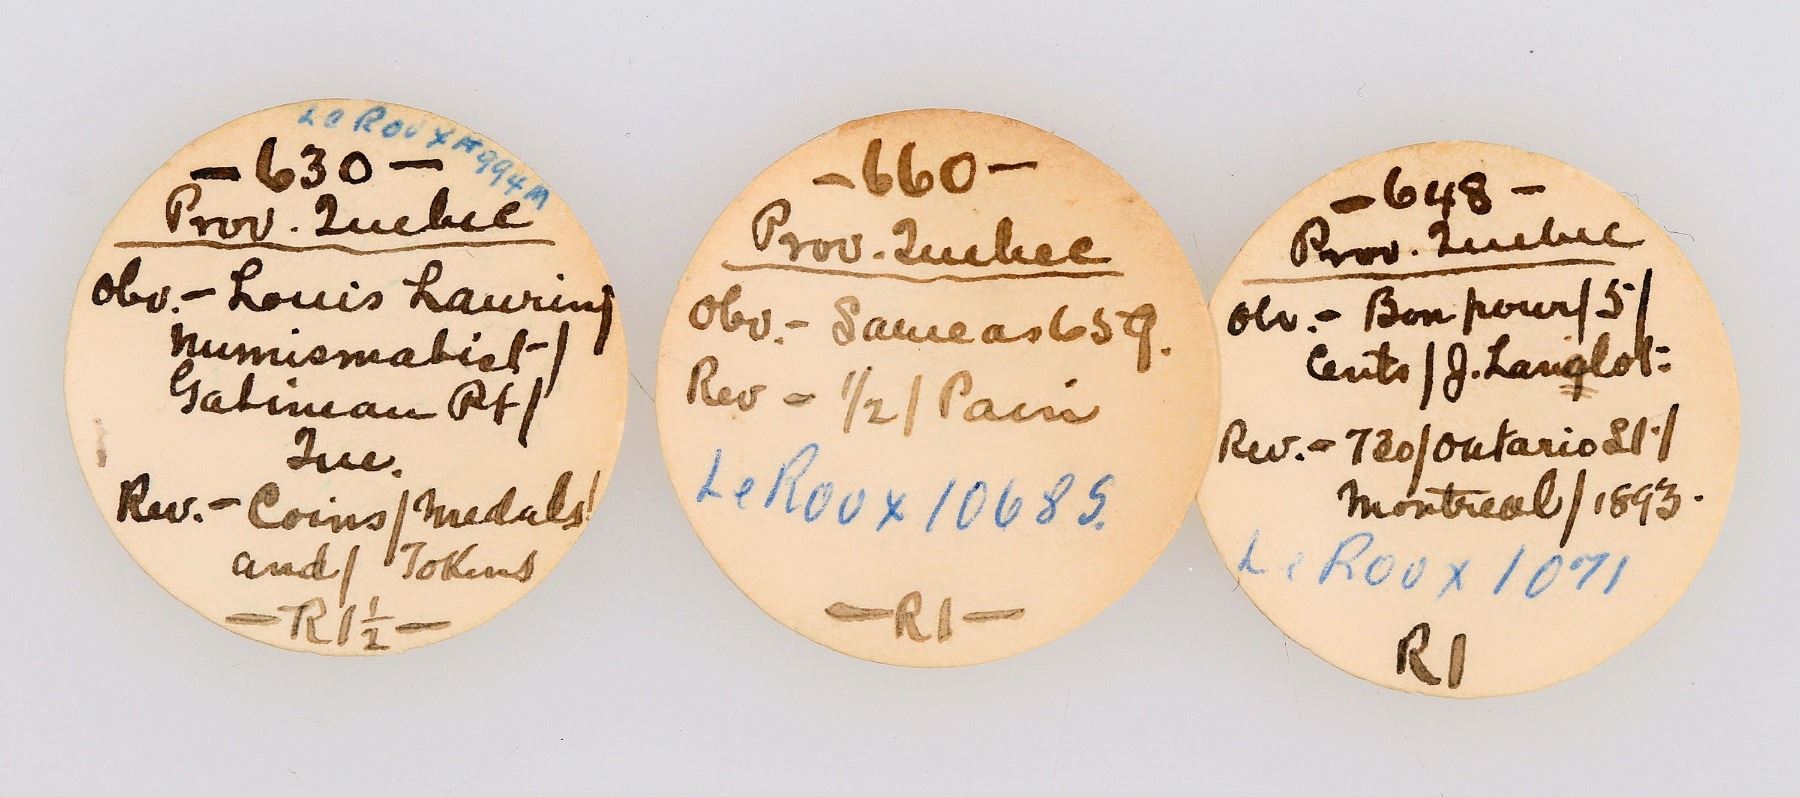 LeRoux #994M
- 630 -
Prov. Quebec
Obv. - Louis Laurin/
Numismatist/
Gatineau Pt/
Que.
Rev. - Coins/Medals/
and/ Tokens
- R1½ -
- 660 -
Prov. Quebec
Obv. - Same as 659.
Rev - 1/2/Pain
LeRoux 1068S.
- R1 -
- 648 -
Prov. Quebec
Obv. - Bon pour/5/
Cents/J. Langlot:
Rev. - 720/Ontario St/
Montreal/1893.
LeRoux 1071
R1